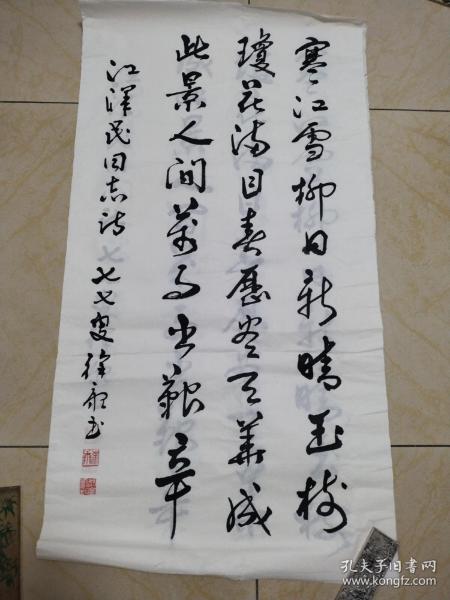 寒江雪柳日新晴玉树
琼花满目春历尽天华成
此景人间万事出艰辛
江泽民同志诗七七叟徐书
孔夫子旧书网
www.kongfz.com